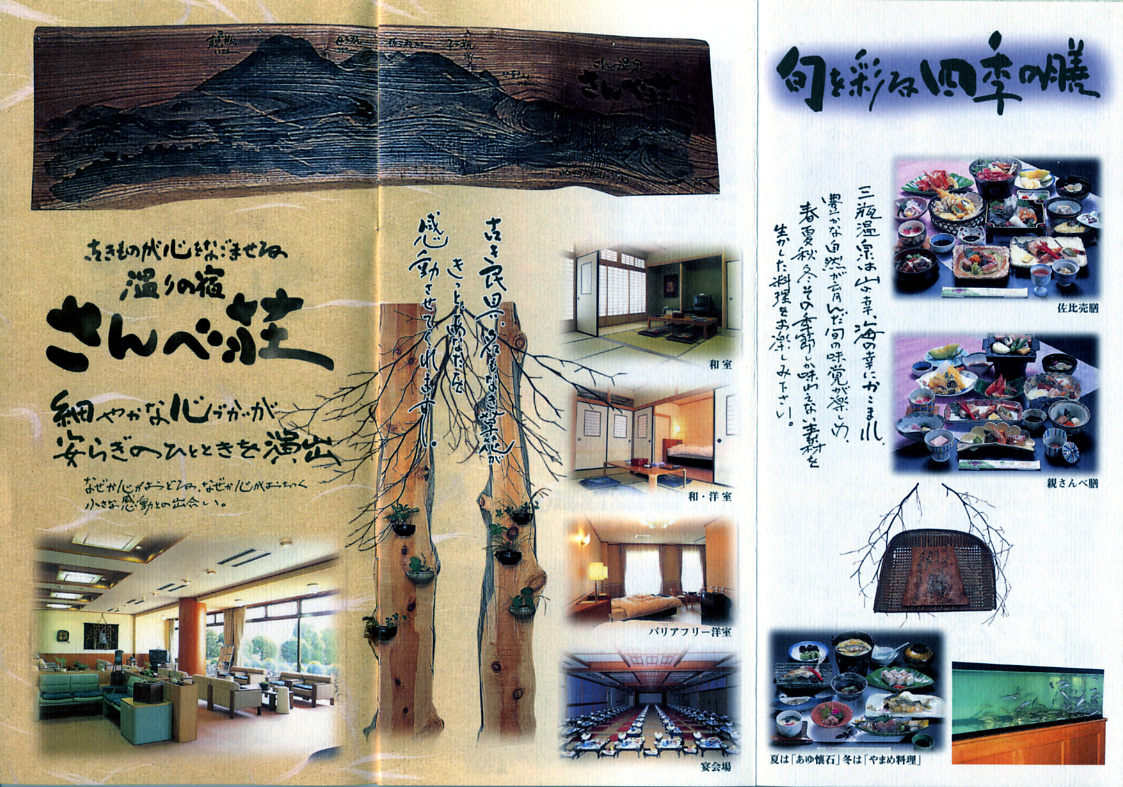 さんべ荘
古きものが心をなごませる
温りの宿
さんべ荘
細やかな心づかいが
安らぎのひとときを演出
なぜか心がほうどる、なぜか心がほっつく
小さな感動との出会い。
古き民具、名もなき草花が
きっとあなたを
感動させてくれます。
和室
和・洋室
バリアフリー洋室
宴会場
旬を彩る四季の膳
三瓶温泉は山の幸、海の幸にかこまれ、
豊かな自然が育んだ旬の味覚が楽しめ、
春夏秋冬その季節しか味わえない素材を
生かした料理をお楽しみ下さい。
佐比売膳
親さんべ膳
夏は「あゆ懐石」冬は「やまめ料理」